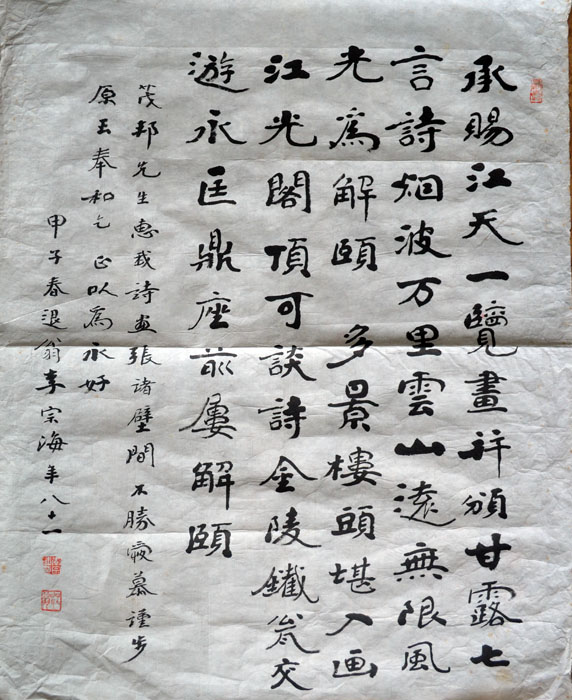 承賜江天一覽畫并頒甘露七
言詩烟波万里雲山遠無限風
光為解頤 多景樓頭堪入画
江光閣頂可談詩金陵鐵瓮交
游永匡鼎座前屢解頤
茂邦先生惠我詩画張諸壁間不勝愛慕謹步
原玉奉和乞正以為永好
甲子春退翁李宗海年八十一